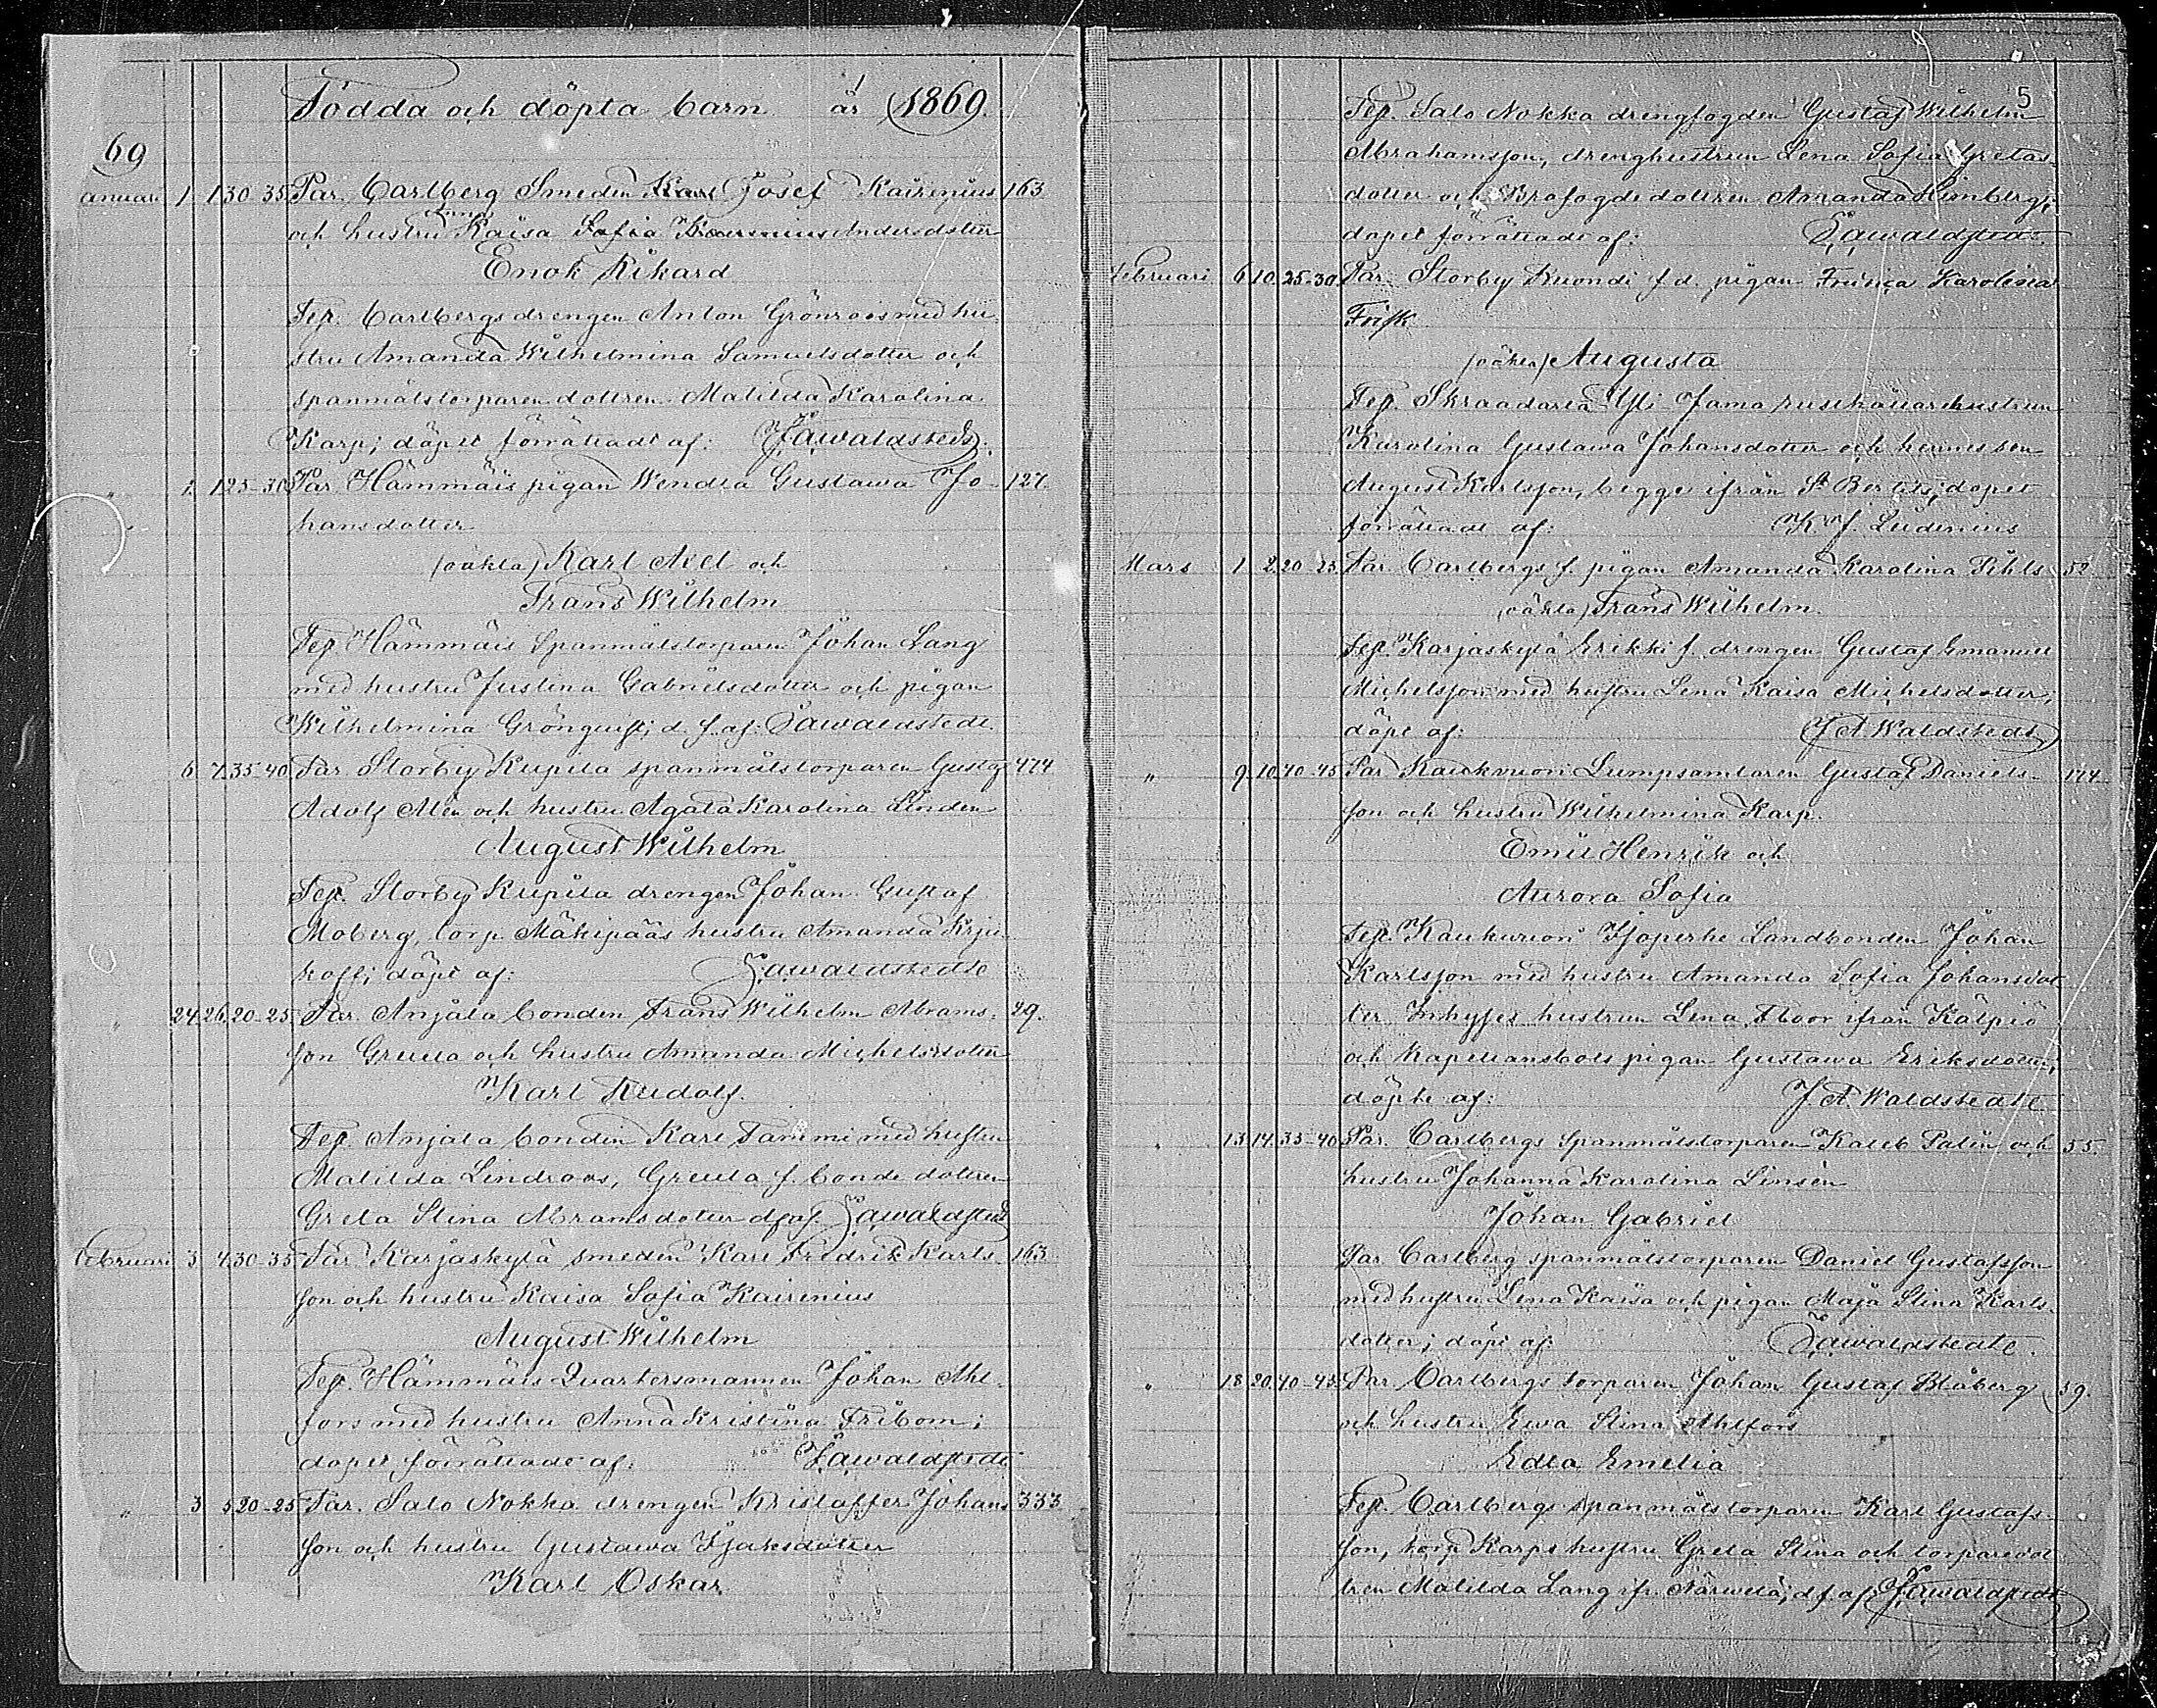 Födda och döpta barn år 1869.
69
anuari 1 1 30-35 Par. Carlberg Smeden Karl Josef Kairenius 163
och hustru Kaisa Sofia Andersdotter
Enok Rikard
Tep. Carlbergs drengen Anton Grönroos med hu-
stru Amanda Wilhelmina Samuelsdotter och
spanmålstorparen dottren Matilda Karolina
Karp; döpet förrättadt af: J A Waldstedt.
" 1. 1 25-30 Par. Hämmäis pigan Wendla Gustawa Jo- 127.
hansdotter
(oäkta) Karl Axel och
Frans Wilhelm
Tep. Hämmäis Spanmålstorparen Johan Lang
med hustru Justina Gabrielsdotter och pigan
Wilhelmina Grönquist; d. f. af: J A Waldstedt.
6 7. 35-40 Par. Storby Kupila spanmålstorparen Gustaf 474
Adolf Alén och hustru Agata Karolina Linden
August Wilhelm
Tep. Storby Kupila drengen Johan Gustaf
Moberg, torp. Mäkipääs hustru Amanda Krju-
koff; döpt af: J A Waldstedt
" 24. 26. 20-25 Par. Anjala bonden Frans Wilhelm Abrams- 29.
son Greula och hustru Amanda Michelsdotter
Karl Rudolf.
Tep. Anjala bonden Karl Tammi med hustru
Matilda Lindroos, Greula f. bonde dottren
Greta Stina Abramsdotter d f af. J A Waldstedt
Februari 3 4 30-35 Par. Karjaskylä smeden Karl Fredrik Karls- 163
son och hustru Kaisa Sofia Kairinius
August Wilhelm
Tep. Hämmäis Quartersmannen Johan Ahl-
fors med hustru Anna Kristina Fribom;
döpet förrättadt af: J A Waldstedt
" 3 5 20-25 Par. Salo Nokka drengen Kristaffer Johans- 333
son och hustru Gustawa Isaksdotter
Karl Oskar
5
Tep. Salo Nokka drengfogden Gustaf Wilhelm
Abrahamsson, drenghustrun Lena Sofia Gretas-
dotter och Brofogdedottren Amanda Hemberg;
döpet förrättadt af: J A Waldstedt.
Februari 6 10. 25-30 Par. Storby Kuondi f. d. pigan Karolina
Frisk
(oäkta) Augusta
Tep. Skraadarla Yli Jama hustrun
Karolina Gustawa Johansdotter och hennes son
August Karlsson, begge ifrån St Bertils; döpet
förrättadt af: K. J. Ludenius
Mars 1 2 20-25 Par. Carlbergs f. pigan Amanda Karolina 52
(oäkta) Frans Wilhelm.
Tep. Karjaskylä Erikki f. drengen Gustaf Emanuel
Michelsson med hustru Lena Kaisa Michelsdotter,
döpt af: J A Waldstedt
" 9. 10. 40-45 Par. Kaukvuori Lumpsamlaren Gustaf Daniels- 174.
son och hustru Wilhelmina Karp.
Emil Henrik och
Aurora Sofia
Tep. Kaukuriori Landbonden Johan
Karlsson med hustru Amanda Sofia Johansdot-
ter Inhyses hustrun Lena Floor ifrån Kälpiö
och Kapellansbols pigan Gustawa Eriksdotter;
döpte af: J. A Waldstedt
" 13 14. 35-40 Par. Carlbergs Spanmålstorparen Kaleb Palin och 55.
hustru Johanna Karolina Linsén
Johan Gabriel
Par. Carlberg spanmålstorparen Daniel Gustafsson
med hustru Lena Kaisa och pigan Maja Stina Karls-
dotter; döpt af: J A Waldstedt.
" 18 20. 40-45 Par. Carlbergs torparen Johan Gustaf Blåberg 59.
och hustru Ewa Stina Ahlfors
Edla Emelia
Tep. Carlbergs spanmålstorparen Karl Gustafs-
son, torp Karps hustru Greta Stina och torparedot-
tren Matilda Lang ifr. Närwelä; d f af: J A Waldstedt